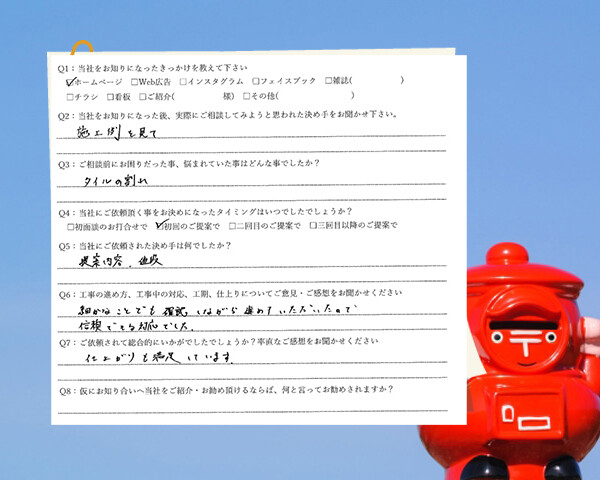 Q1：当社をお知りになったきっかけを教えて下さい
☑ホームページ □Web広告 □インスタグラム □フェイスブック □雑誌( )
□チラシ □看板 □ご紹介( 様) □その他( )
Q2：当社をお知りになった後、実際にご相談してみようと思われた決め手をお聞かせ下さい。
施工例を見て
Q3：ご相談前にお困りだった事、悩まれていた事はどんな事でしたか？
タイルの割れ
Q4：当社にご依頼頂く事をお決めになったタイミングはいつでしたでしょうか？
□初面談のお打合せで ☑初回のご提案で □二回目のご提案で □三回目以降のご提案で
Q5：当社にご依頼された決め手は何でしたか？
提案内容、値段
Q6：工事の進め方、工事中の対応、工期、仕上りについてご意見・ご感想をお聞かせください
細かなことでも確認しながら進めていただいたので
信頼できる対応でした。
Q7：ご依頼されて総合的にいかがでしたでしょうか？率直なご感想をお聞かせください
仕上がりも満足しています。
Q8：仮にお知り合いへ当社をご紹介・お勧め頂けるならば、何と言ってお勧めされますか？